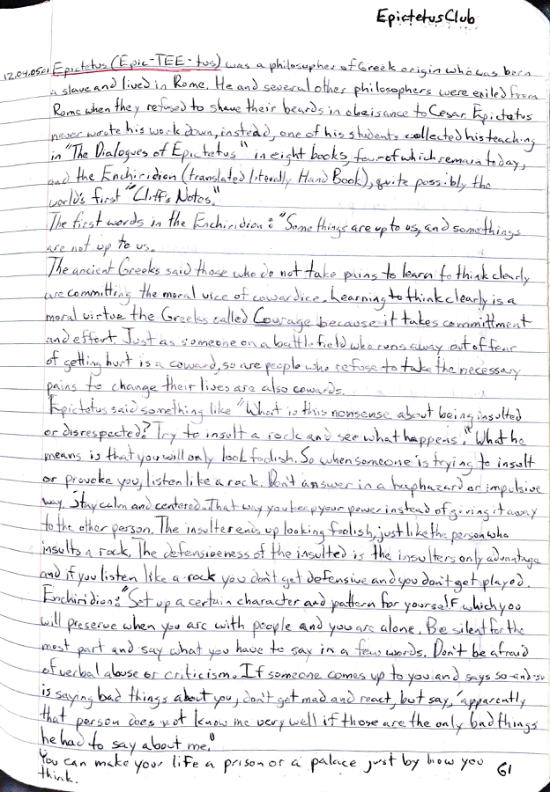 EpictetusClub
12.04.05 Epictetus (Epic-TEE-tus) was a philosopher of Greek origin who was born
a slave and lived in Rome. He and several other philosophers were exiled from
Rome when they refused to shave their beards in obeisance to Cesar. Epictetus
never wrote his work down, instead, one of his students collected his teaching
in "The Dialogues of Epictetus" in eight books, four of which remain today,
and the Enchiridion (translated literally Hand Book), quite possibly the
world's first "Cliff's Notes."
The first words in the Enchiridion: "Some things are up to us, and some things
are not up to us.
The ancient Greeks said those who do not take pains to learn to think clearly
are committing the moral vice of cowardice. Learning to think clearly is a
moral virtue the Greeks called Courage because it takes committment
and effort. Just as someone on a battlefield who runs away out of fear
of getting hurt is a coward, so are people who refuse to take the necessary
pains to change their lives are also cowards.
Epictetus said something like "What is this nonsense about being insulted
or disrespected? Try to insult a rock and see what happens." What he
means is that you will only look foolish. So when someone is trying to insult
or provoke you, listen like a rock. Don't answer in a haphazard or impulsive
way. Stay calm and centered. That way you keep your power instead of giving it away
to the other person. The insulter ends up looking foolish, just like the person who
insults a rock. The defensiveness of the insulted is the insulters only advantage
and if you listen like a rock you don't get defensive and you don't get played.
Enchiridion: "Set up a certain character and pattern for yourself which you
will preserve when you are with people and you are alone. Be silent for the
most part and say what you have to say in a few words. Don't be afraid
of verbal abuse or criticism. If someone comes up to you and says so-and-so
is saying bad things about you, don't get mad and react, but say, 'apparently
that person does not know me very well if those are the only bad things
he had to say about me."
You can make your life a prison or a palace just by how you
think.
61